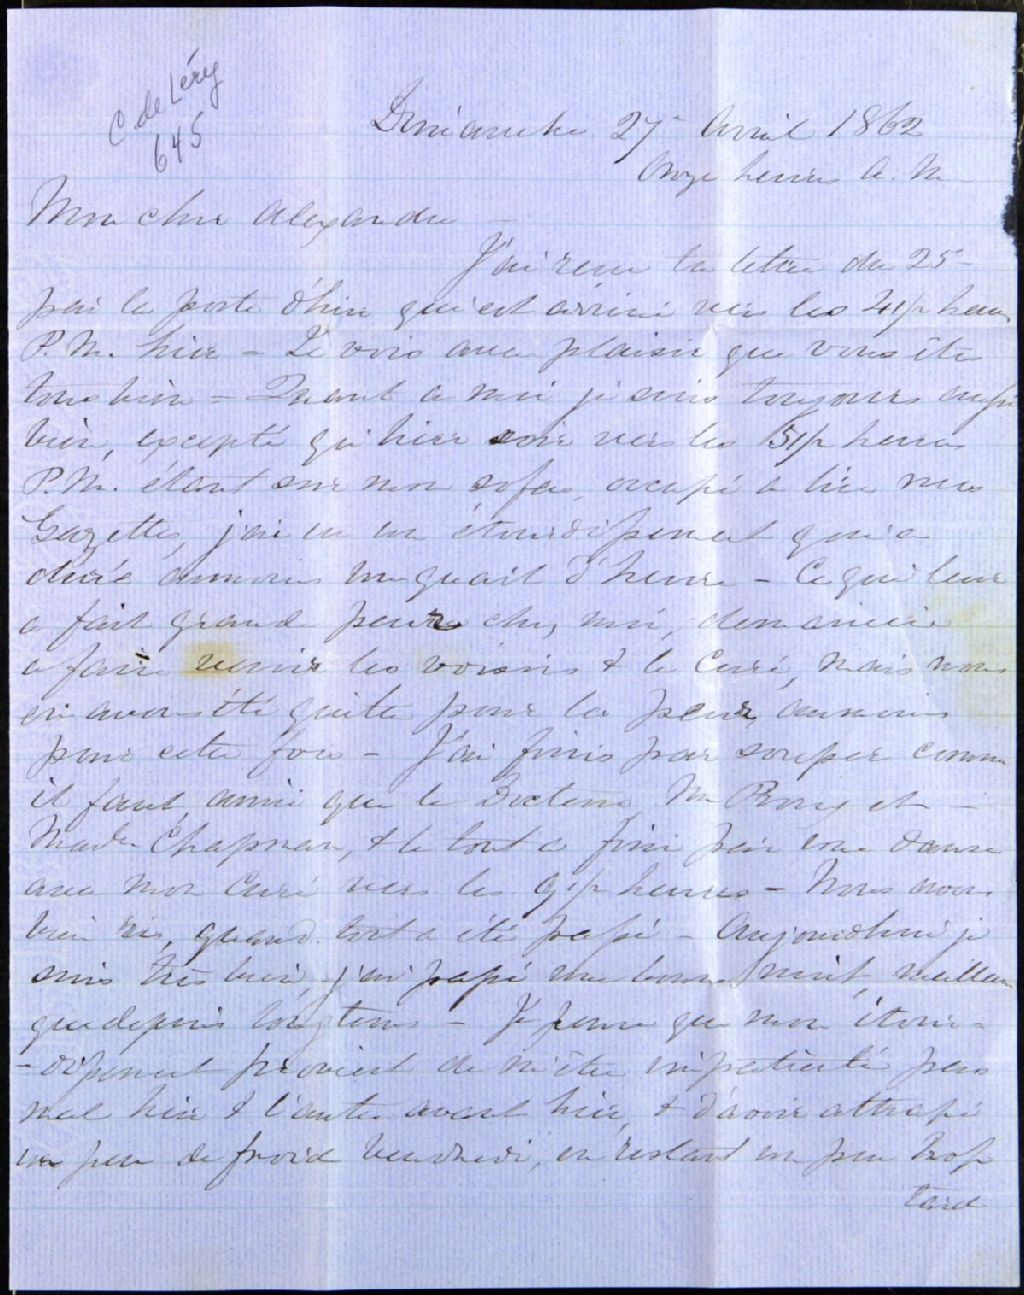 C. de Léry
645
Dimanche 27 Avril 1862
Onze heures A. M.
Mon cher Alexandre
J'ai recu ta lettre du 25
par la poste d'hier qui est arrivée vers les 4 1/2 heures
P. M. hier - Je vois avec plaisir que vous êtes
tous bien - Quant a moi je suis toujours assez
bien, excepté qu'hier soir vers les 5 1/2 heures
P. M. étant sur mon sofa, occupé a lire mes
Gazettes, j'ai eu un étourdissement qui a
duré au moins un quart d'heure - Ce qui leur
a fait grand peur chez moi, de maniere
a faire venir les voisins & le Curé, mais nous
en avons été quitte pour la peur, au moins
pour cette fois - J'ai finis par souper comme
il faut, ainsi que le Docteur, Mr Remy et -
Made Chapman, & le tout a fini par une danse
avec mon Curé vers les 9 1/2 heures - Nous avons
bien ris, quand tout a été passé - Aujourdhui je
suis très bien, j'ai passé une bonne nuit, meilleure
que depuis longtems - Je pense que mon étour-
-dissement provient de m'être impatienté pas
mal hier & l'autre avant hier, & d'avoir attrapé
un peu de froid Vendredi, en restant un peu trop
tard